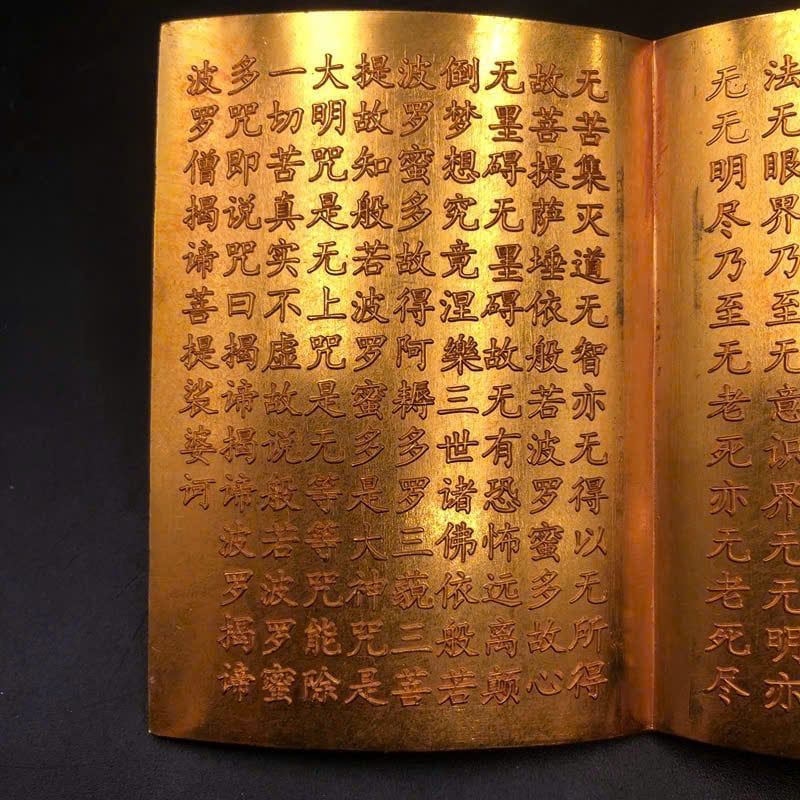 法无眼界乃至无意识界无无明亦
无无明尽乃至无老死亦无老死尽
无苦集灭道无智亦无得以无所得
故菩提萨埵依般若波罗蜜多故心
无墨碍无墨碍故无有恐怖远离颠
倒梦想究竟涅樂三世诸佛依般若
波罗蜜多故得阿耨多罗三藐三菩
提故知般若波罗蜜多是大神咒是
大明咒是无上咒是无等等咒能除
一切苦真实不虚故说般若波罗蜜
多咒即说咒曰揭谛揭谛波罗揭谛
波罗僧揭谛菩提裟婆诃